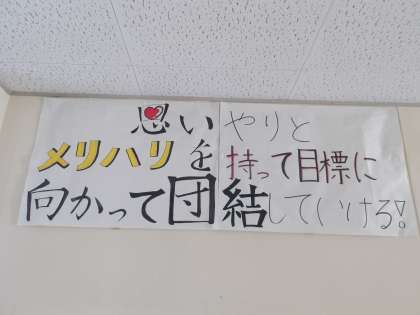 思いやりと
メリハリを持って目標に
向かって団結していける!